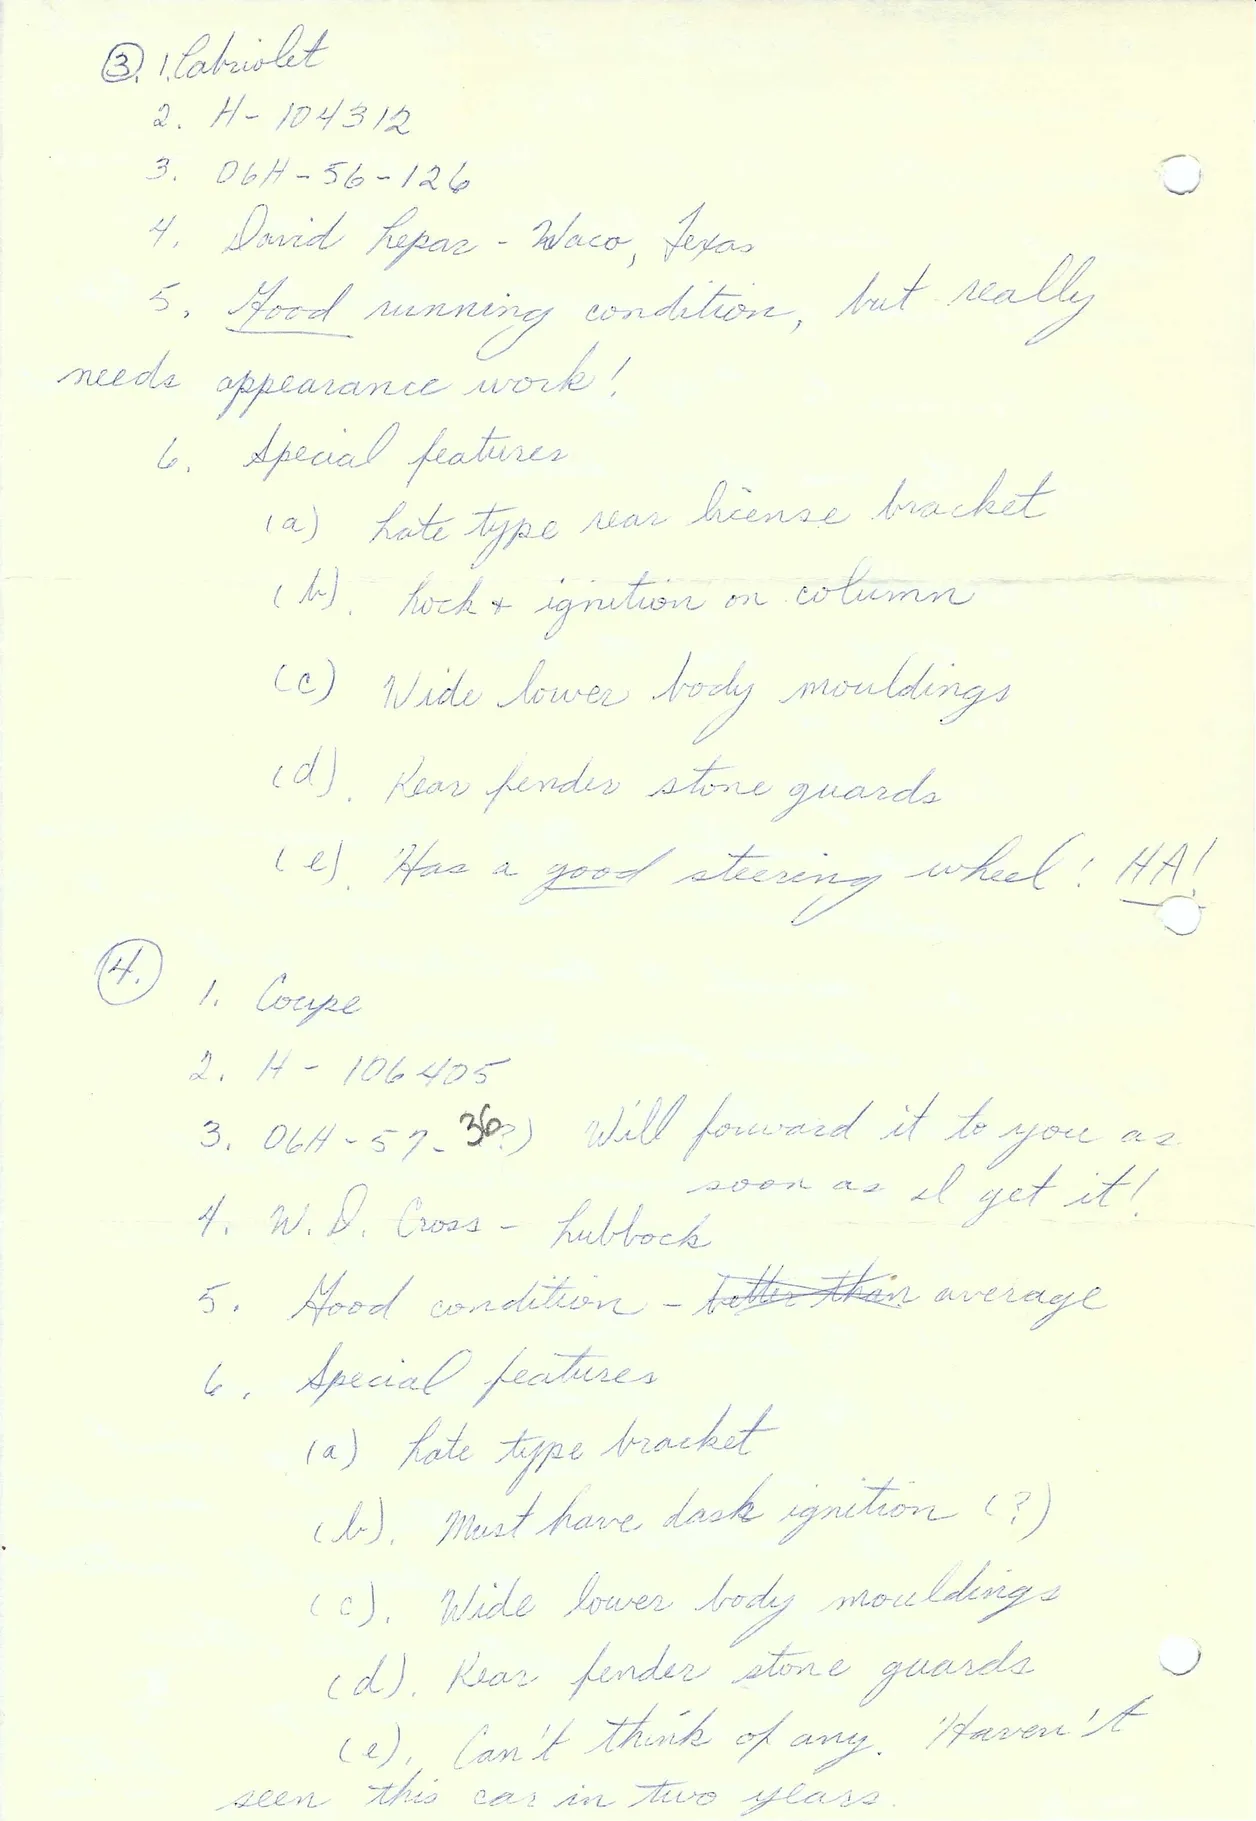 ③. 1. Cabriolet
2. H-104312
3. 06H-56-126
4. David Lepar - Waco, Texas
5. Good running condition, but really
needs appearance work!
6. Special features
(a) Late type rear license bracket
(b). Lock & ignition on column
(c) Wide lower body mouldings
(d). Rear fender stone guards
(e). Has a good steering wheel! HA!
④. 1. Coupe
2. H-106405
3. 06H-57-36?) Will forward it to you as
soon as I get it!
4. W. D. Cross - Lubbock
5. Good condition - better than average
6. Special features
(a) Late type bracket
(b). Must have dash ignition (?)
(c). Wide lower body mouldings
(d). Rear fender stone guards
(e). Can't think of any. Haven't
seen this car in two years.